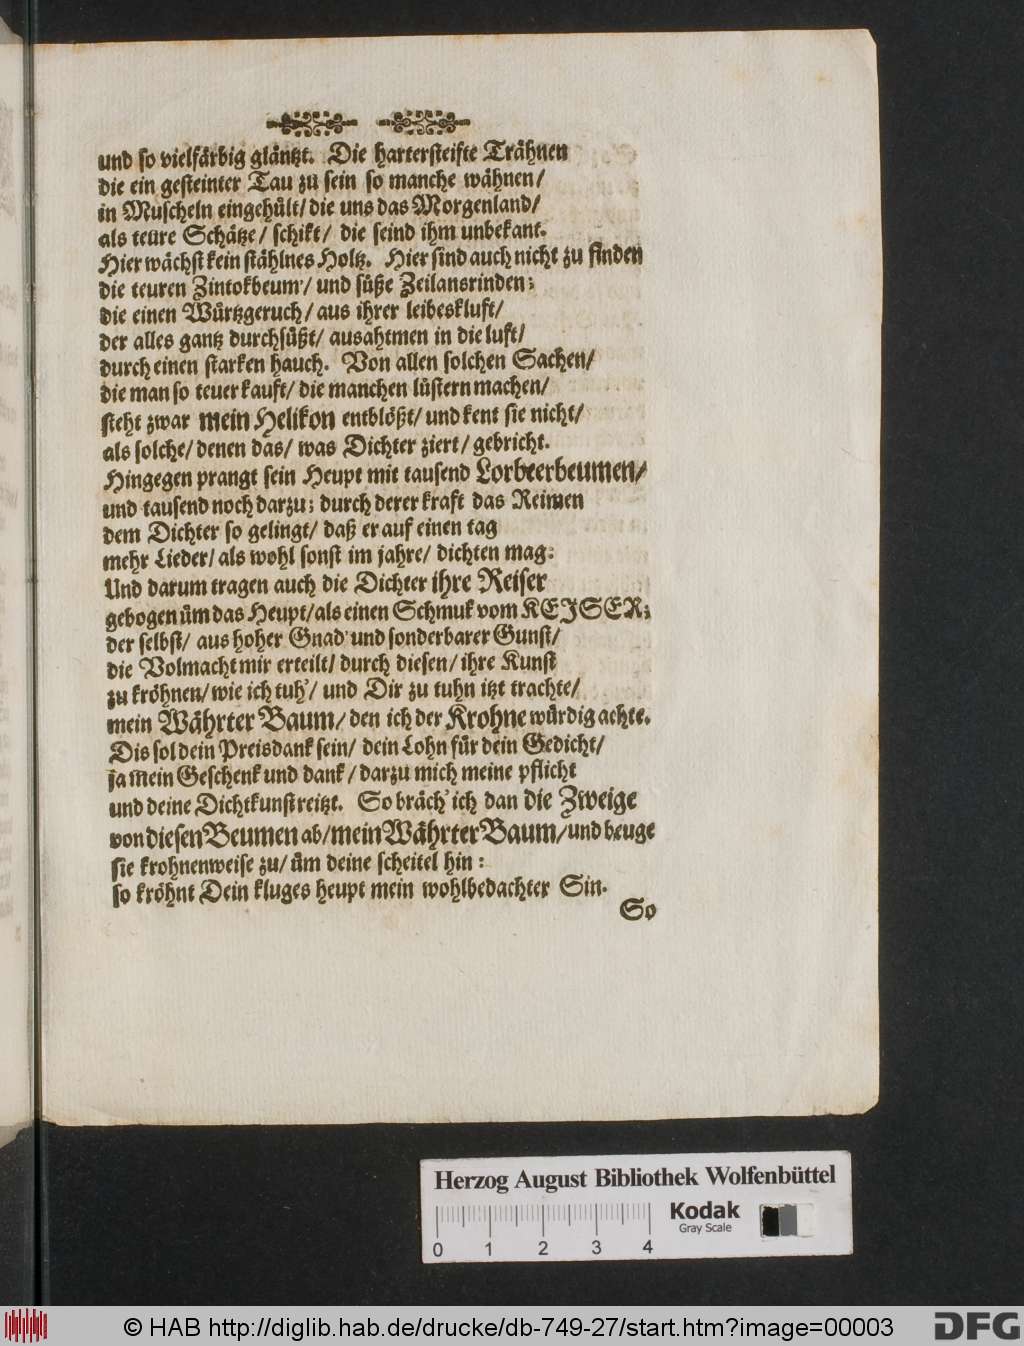 und so vielfärbig gläntzt. Die hartersteifte Trähnen
die ein gesteinter Tau zu sein so manche wähnen/
in Muscheln eingehült/ die uns das Morgenland/
als teüre Schätze/ schikt/ die seind ihm unbekant.
Hier wächst kein stählnes Holtz. Hier sind auch nicht zu finden
die teuren Zintokbeum'/ und süße Zeilansrinden;
die einen Würtzgeruch/ aus ihrer leibeskluft/
der alles gantz durchsüßt/ ausahtmen in die luft/
durch einen starken hauch. Von allen solchen Sachen/
die man so teuer kauft/ die manchen lüstern machen/
steht zwar mein Helikon entblößt/ und kent sie nicht/
als solche/ denen das/ was Dichter ziert/ gebricht.
Hingegen prangt sein Heupt mit tausend Lorbeerbeumen/
und tausend noch darzu; durch derer kraft das Reimen
dem Dichter so gelingt/ daß er auf einen tag
mehr Lieder/ als wohl sonst im jahre/ dichten mag:
Und darum tragen auch die Dichter ihre Reiser
gebogen üm das Heupt/ als einen Schmuk vom KEJSER;
der selbst/ aus hoher Gnad' und sonderbarer Gunst/
die Volmacht mir erteilt/ durch diesen/ ihre Kunst
zu kröhnen/ wie ich tuh'/ und Dir zu tuhn itzt trachte/
mein Währter Baum/ den ich der Krohne würdig achte.
Dis sol dein Preisdank sein/ dein Lohn für dein Gedicht/
ja mein Geschenk und dank/ darzu mich meine pflicht
und deine Dichtkunst reitzt. So bräch' ich dan die Zweige
von diesen Beumen ab/ mein Währter Baum/ und beuge
sie krohnenweise zu/ üm deine scheitel hin:
so kröhnt Dein kluges heupt mein wohlbedachter Sin.
So
Herzog August Bibliothek Wolfenbüttel
Kodak
Gray Scale
0 1 2 3 4
© HAB http://diglib.hab.de/drucke/db-749-27/start.htm?image=00003
DFG